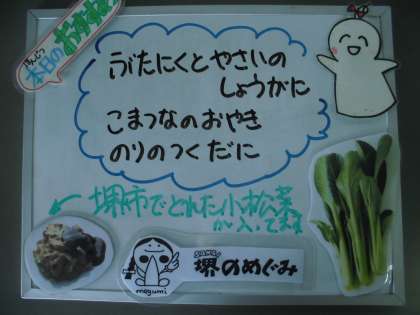 ほんじつ
本日のおすすめ
ぶたにくとやさいの
しょうがに
こまつなのおやき
のりのつくだに
←堺市でとれた小松菜
が入ってます
堺のめぐみ
megumi